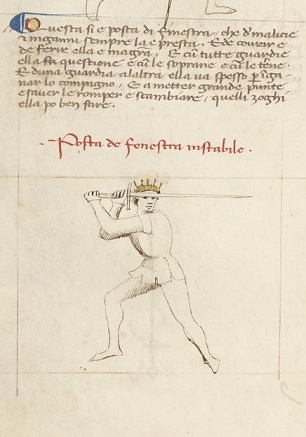 Questa si e posta di finestra, che d'malicie
e inganni sempre la e presta. E de covrire e
de ferire ella e magra. E cũ tutte guardie
ella fa questione e cũ le soprane e cũ le tene.
E d'una guardia a laltra ella va spesso p inga
nar lo compagno. E a metter grande punte
e saver le romper e scambiare, quelli zoghi
ella po ben fare.
Posta de fenestra instabile.